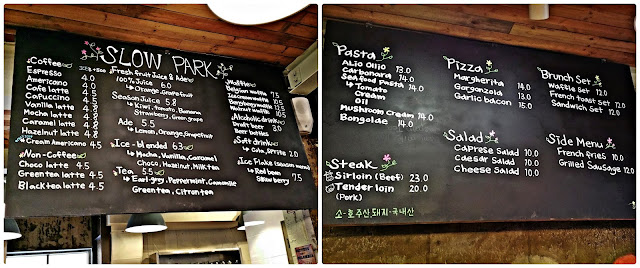 SLOW PARK
Coffee
Espresso 4.0
Americano 4.0
Cafe latte 4.5
Cappuccino 4.5
Vanilla latte 4.8
Mocha latte 4.8
Caramel latte 4.8
Hazelnut latte 4.8
Cream Americano 4.5
Non-Coffee
Choco latte 4.5
Green tea latte 4.5
Black tea latte 4.5
Fresh fruit Juice & Ade
100% Juice 6.0
Orange, Grapefruit
Season Juice 5.8
Kiwi, Tomato, Banana
Strawberry, Green grape
Ade 5.5
Lemon, Orange, Grapefruit
Ice-blended 6.3
Mocha, Vanilla, Caramel
Choco, Hazelnut, Milk tea
Tea 5.5
Earl grey, Peppermint, Camomile
Green tea, Citron tea
Waffle
Belgian waffle 7.5
Ice cream waffle 10.5
waffle 10.5
waffle 10.5
Alcoholic drink
Draft beer 3.0
Bar beer
Soft drink
Cola, Sprite 2.0
Ice Flake (season menu)
Red bean
Strawberry 7.5
Pasta
Alio Olio 13.0
Carbonara 14.0
Seafood pasta 14.0
Tomato
Cream
Oil
Mushroom Cream 14.0
Bongolae 14.0
Steak
Sirloin (Beef) 23.0
Tenderloin 20.0
(Pork)
소-호주산, 돼지-국내산
Pizza
Margherita 14.0
Gorgonzola 13.0
Garlic bacon 15.0
Salad
Caprese Salad 10.0
Caesar Salad 10.0
Cheese Salad 10.0
Brunch Set
Waffle Set 12.0
French toast Set 12.0
Sandwich Set 12.0
Side Menu
French fries 10.0
Grilled Sausage 12.0